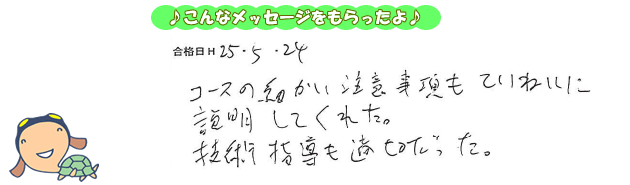 ♪こんなメッセージをもらったよ♪
合格日H 25・5・24
コースの細かい注意事項もていねいに
説明してくれた。
技術指導も適切だった。